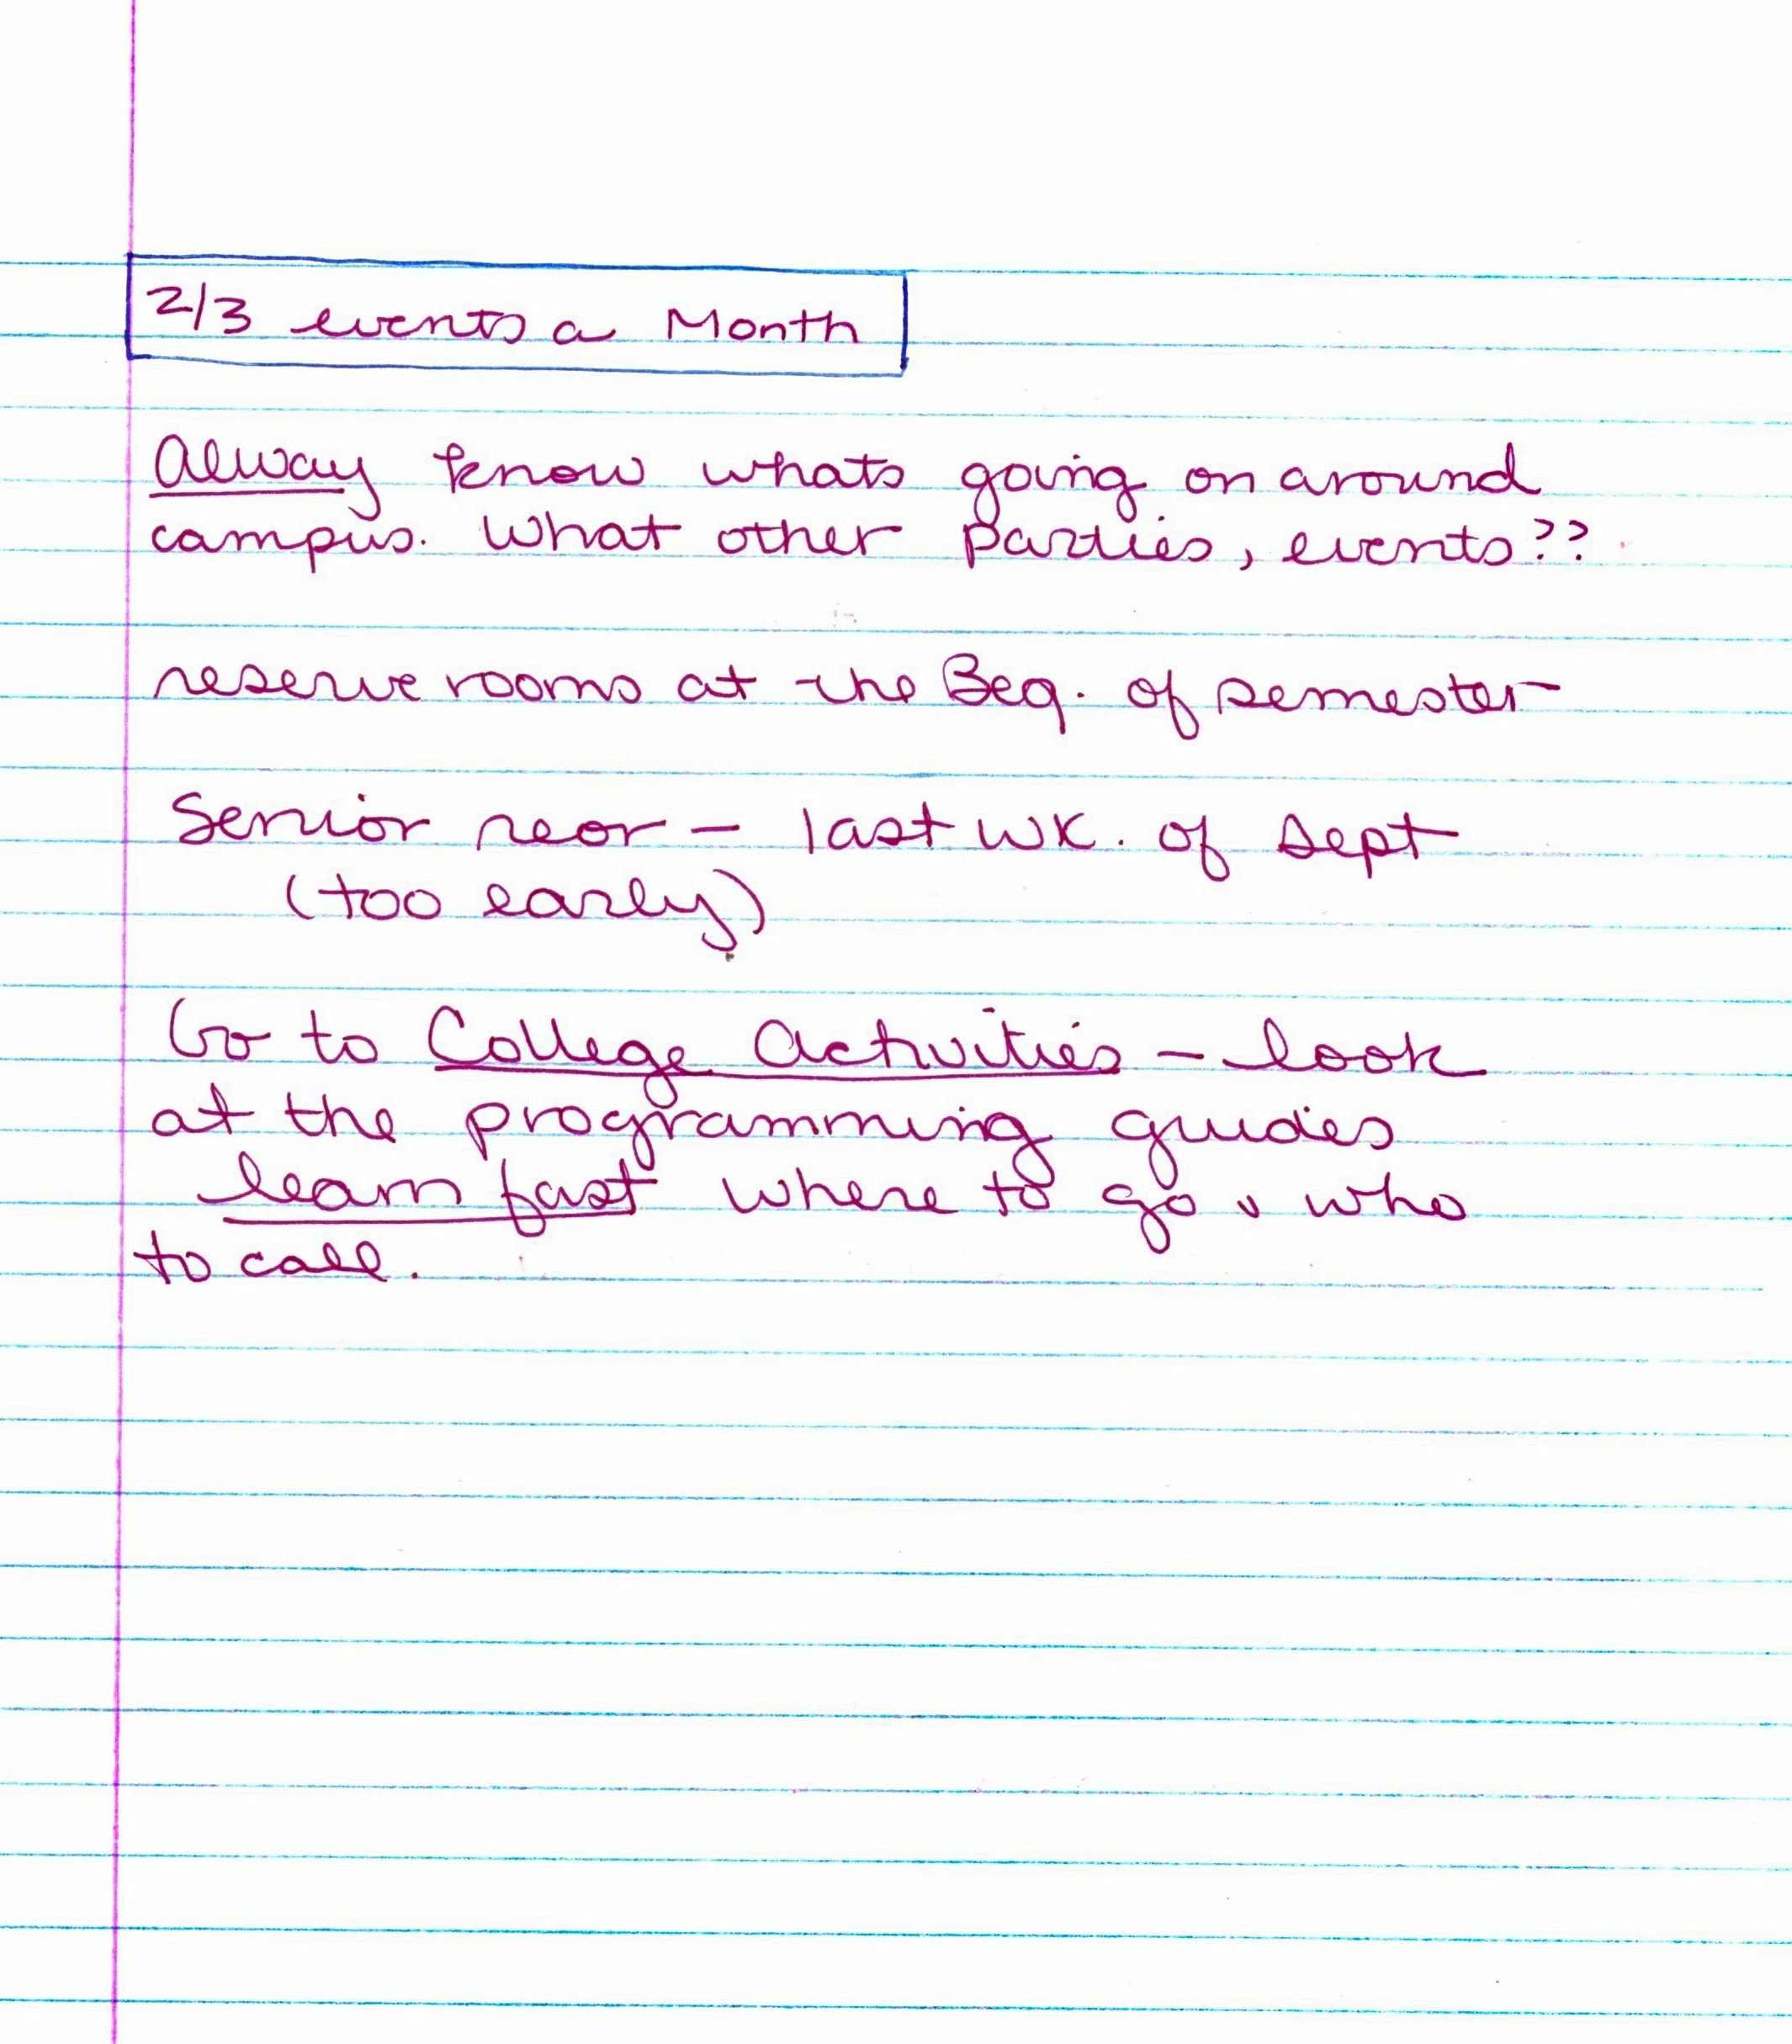 2/3 events a Month
Alway know whats going on around
campus. What other parties, events??
reserve rooms at the Beg. of semester
Senior – last wk. of Sept
(too early)
Go to College Activities – look
at the programming guides
learn fast where to go & who
to call.